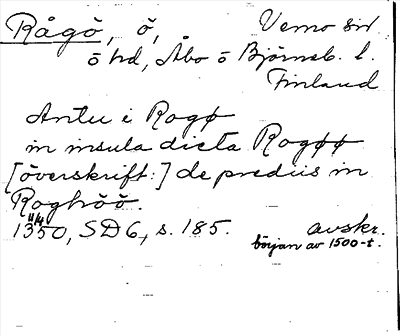 Rågö, ö, Vemo sn
ö hd, Åbo o Björneb. l.
Finland
Antu i Rogø
in insula dicta Rogøø
[överskrift:] de prediis in
Roghöö.
11/4
1350, SD6, s. 185. avskr.
början av 1500-t.